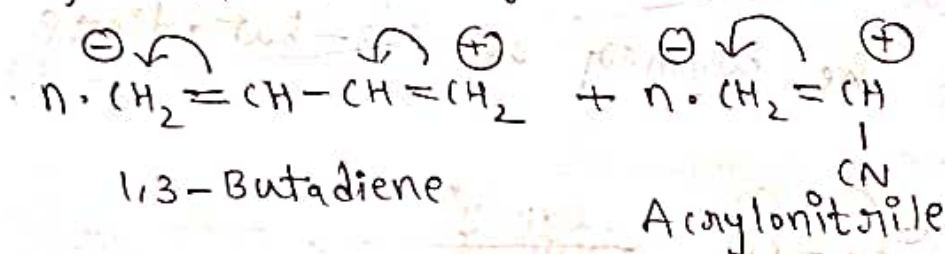 ⊖ ⊕ ⊖ ⊕
n. CH₂=CH-CH=CH₂ + n. CH₂=CH
|
CN
1,3-Butadiene
Acrylonitrile